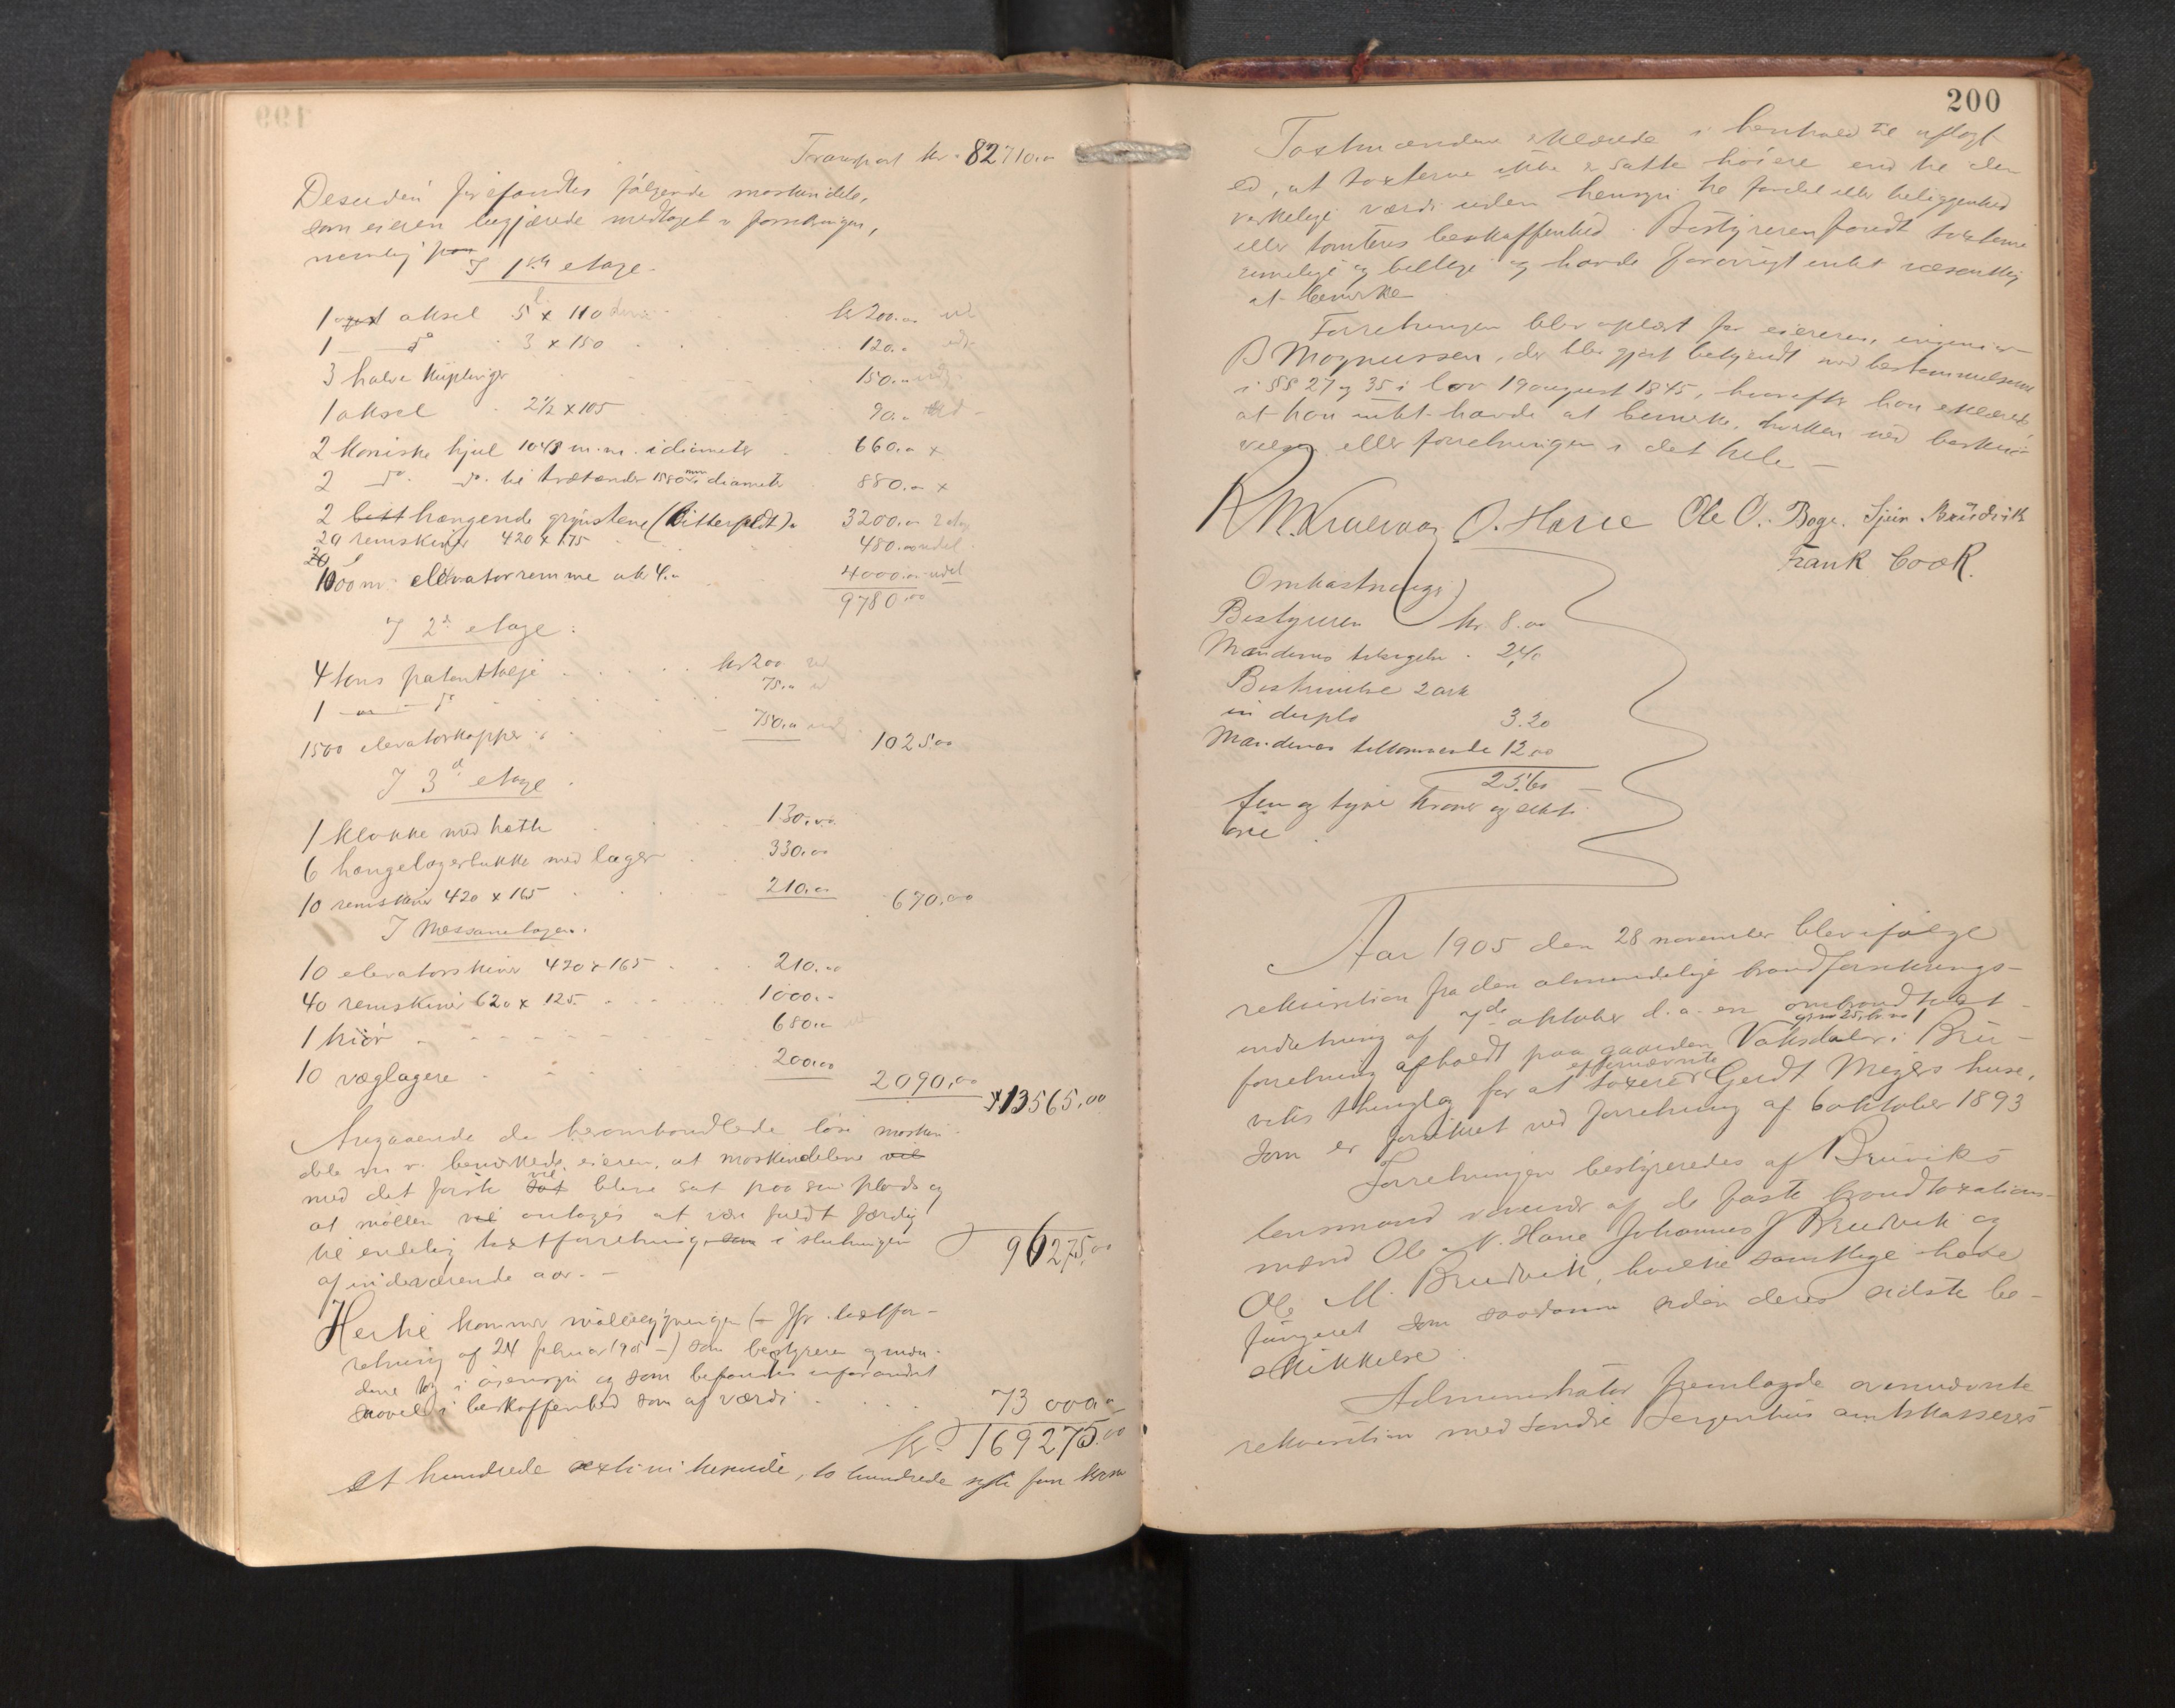 Transport kr. 82710.00
Desuden forefandtes følgende maskindele,
som eieren begjærede medtaget i forretningen,
nemlig
I 1ste etage.
1 aksel 5 x 110 kr 200.00
1 — do 3 x 150 120.00
3 halve kuplinger 150.00
1 aksel 2½ x 105 90.00
2 koniske hjul 1048 m.m. i diameter 660.00 x
2 do. do. til trætænder 1580 mm i diameter 880.00 x
2 hængende grynstene (Bitterfeldt) 3200.00
20 remskiver 420 x 175 480.00
1000 m. elevatorremme à kr 4.00 4000.00
9780.00
I 2d etage:
4 tons patenttalje kr 200
1 — do 75.00
1500 elevatorkopper 750.00 1025.00
I 3d etage.
1 klokke med hætte 130.00
6 hængelagerbukke med lager 330.00
10 remskiver 420 x 165 210.00 670.00
I Messanetagen.
10 elevatorskiver 420 x 165 210.00
40 remskiver 620 x 125 1000.-
1 680.00
10 væglagere 200.00 2090.00 13565.00
Angaaende de heromhandlede løse maskin-
dele m. v. bemerkede eieren, at maskindelene vil
med det første vil blive sat paa sin plads og
at møllen antages at være fuldt færdig
til endelig taxtforretning i slutningen
af indeværende aar. — 96275.00
Hertil kommer møllebygningen (— Jfr. taxtfor-
retning af 24 februar 1905 —) som bestyreren og mæn-
dene tog i øiensyn og som befandtes uforandret
saavel i beskaffenhed som af værdi 73 000.00
kr. 169275.00
et hundrede sextini tusinde, to hundrede sytti fem kroner
200
Taxtmændene erklærede i henhold til aflagt
ed, at taxterne ikke er satte høiere end til den
virkelige værdi uden hensyn til fordel eller beliggenhed
eller tomtens beskaffenhed. Bestyreren fandt taxterne
rimelige og billige og havde forøvrigt intet væsentlig
at bemerke
Forretningen blev oplæst for eieren, ingeniør
B Magnussen, der blev gjort bekjendt med bestemmelserne
i §§ 27 og 35 i lov 19 august 1845, hvorefter han erklærede,
at han intet havde at bemerke, hverken ved beskri-
velsen eller forretningen i det hele —
O. Hane Ole O. Boge. Sjur Bruvik
Frank Cook.
Omkostninger
Bestyreren kr. 8.00
Mændenes 2.40
Beskrivelse 2 ark
in duplo 3.20
Mændenes tilkommende 12.00
25.60
fem og tyve kroner og sexti
øre
Aar 1905 den 28 november blev ifølge
rekvisition fra den almindelige brandforsikrings-
indretning af 7de oktober d. a. en ombrandtaxt-
forretning afholdt paa gaarden Vaksdal gno 25, br. no 1 i Bru-
viks thinglag for at taxere efternævnte Gerdt Meyers huse,
som er forsikret ved forretning af 6 oktober 1893
Forretningen bestyreredes af Bruviks
lensmand af de faste brandtaxations-
mænd Ole N. Hane Johannes J Bruvik og
Ole M. Bruvik, hvilke samtlige have
fungeret som saadanne siden deres sidste be-
skikkelse.
Administrator fremlagde ovennævnte
rekvisition med Søndre Bergenhus amtskasseres